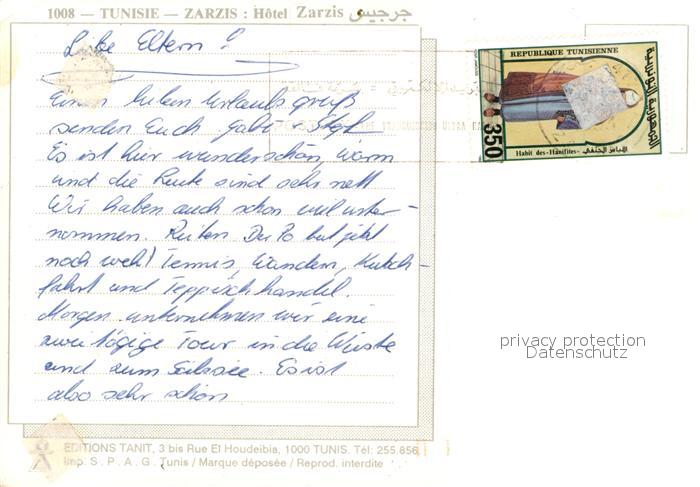 1008 — TUNISIE — ZARZIS : Hôtel Zarzis جرجيس
Liebe Eltern!
Einen lieben Urlaubsgruß
senden Euch Gabi Stef
Es ist hier wunderschön, warm
und die Leute sind sehr nett
Wir haben auch schon viel unter-
nommen. Reiten Der Po tut jetzt
noch weh! Tennis, Wandern, Kutsch-
fahrt und Teppichhandel.
Morgen unternehmen wir eine
zwei tägige Tour in die Wüste
und zum Salzsee. Es ist
also sehr schön
REPUBLIQUE TUNISIENNE
الجمهورية التونسية
350
Habit des-Hanifites- اللباس الحنفي
privacy protection
Datenschutz
EDITIONS TANIT, 3 bis Rue El Houdeibia, 1000 TUNIS. Tél: 255.856
Imp. S . P . A . G . Tunis / Marque déposée / Reprod. interdite